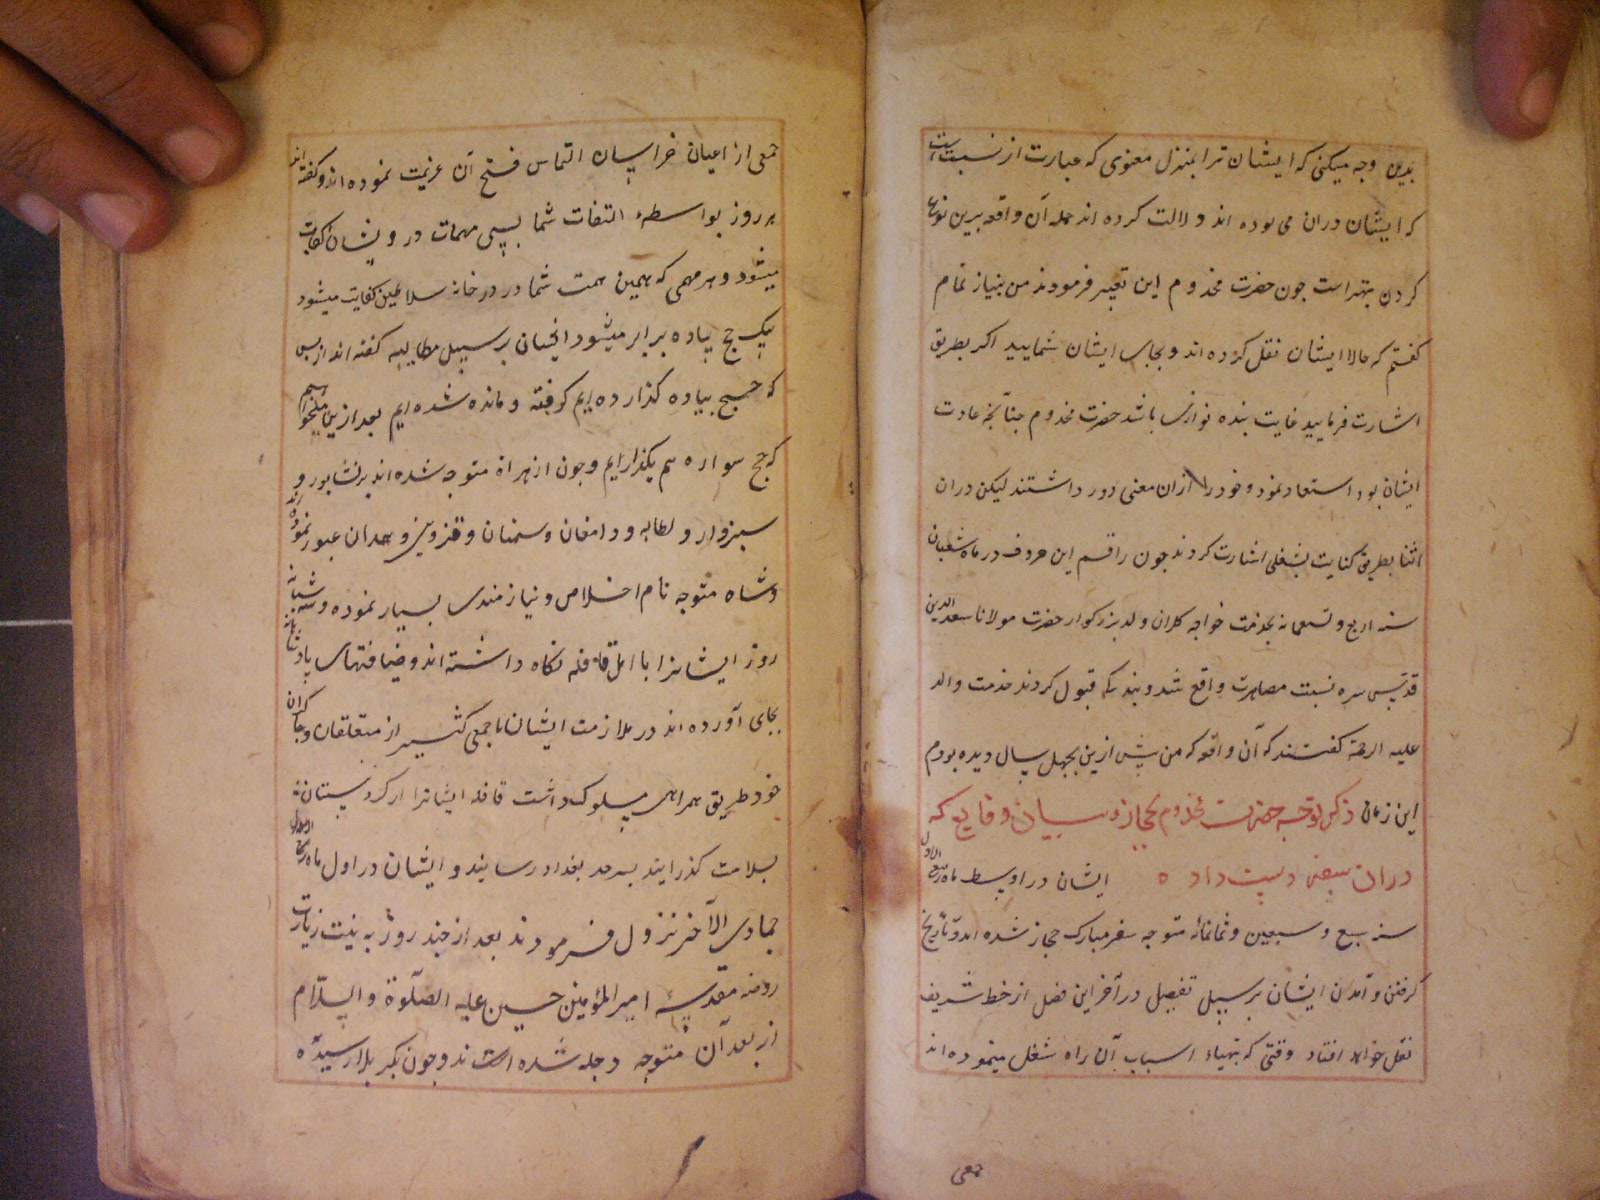 بدین وجه میکنی که ایشان ترا بمنزل معنوی که عبارت از نسبت است
که ایشان دران می بوده اند دلالت کرده اند حمله آن واقعه برین نوع
کردن بهتر است جون حضرت مخدوم این تعبیر فرمودند من بنیاز تمام
کفتم که حالا ایشان نقل کرده اند و بجای ایشان شمایید اکر بطریق
اشارت فرمایید غایت بنده نوازی باشد حضرت مخدوم جنانجه عادت
ایشان بود استبعاد نمود و خود را ازان معنی دور داشتند لیکن دران
اثنا بطریق کنایت بشغلی اشارت کردند جون راقم این حروف در ماه شعبان
سنه اربع و تسعمائه بخدمت خواجه کلان ولد بزرکوار حضرت مولانا سعد الدین
قدس سره نسبت مصاهرت واقع شد و بنده را قبول کردند خدمت والد
علیه الرحمة کفتند که آن واقعه که من پیش ازین بجهل سال دیده بودم
این زمان ذکر توجه حضرت مخدوم بحجاز و بیان وقایع که
دران سفر دست داده ایشان در اوسط ماه ربیع الاول
سنه سبع و سبعین و ثمانمائة متوجه سفر مبارک حجاز شده اند و تاریخ
رفتن و آمدن ایشان بر سبیل تفصیل در آخر این فصل از خط شریف
نقل خواهد افتاد وقتی که بتهیاء اسباب آن راه شغل مینموده اند
جمعی
جمعی از اعیان خراسان التماس فسخ آن عزیمت نموده اند و کفته اند
هر روز بواسطهء التفات شما بسی مهمات درویشان کفایت
میشود و هر مهمی که بیمن همت شما در درخانه سلاطین کفایت میشود
بیک حج پیاده برابر میشود ایشان بر سبیل مطایبه کفته اند از بس
که حج پیاده کذارده ایم کوفته و مانده شده ایم بعد ازین میخواهیم
که حج سواره هم بکذاریم و جون از هراة متوجه شده اند بر نشابور و
سبزوار و بسطام و دامغان و سمنان و قزوین و همدان عبور نموده اند
و شاه منوجهر نام اخلاص و نیازمندی بسیار نموده و سه شبانه
روز ایشانرا با اهل قافله نکاه داشته اند و ضیافتهای پادشاهانه
بجای آورده اند در ملازمت ایشان با جمعی کثیر از متعلقان و جاکران
خود طریق همراهی مسلوک داشت قافله ایشانرا از کردستان
بسلامت کذرانیده بسرحد بغداد رسانیدند و ایشان در اول ماه
جمادی الآخر نزول فرمودند بعد از جند روز به نیت زیارت
روضه مقدسه امیر المؤمنین حسین علیه الصلوة والسلام
از بعد آن متوجه دجله شده است ند و جون بکربلا رسیده